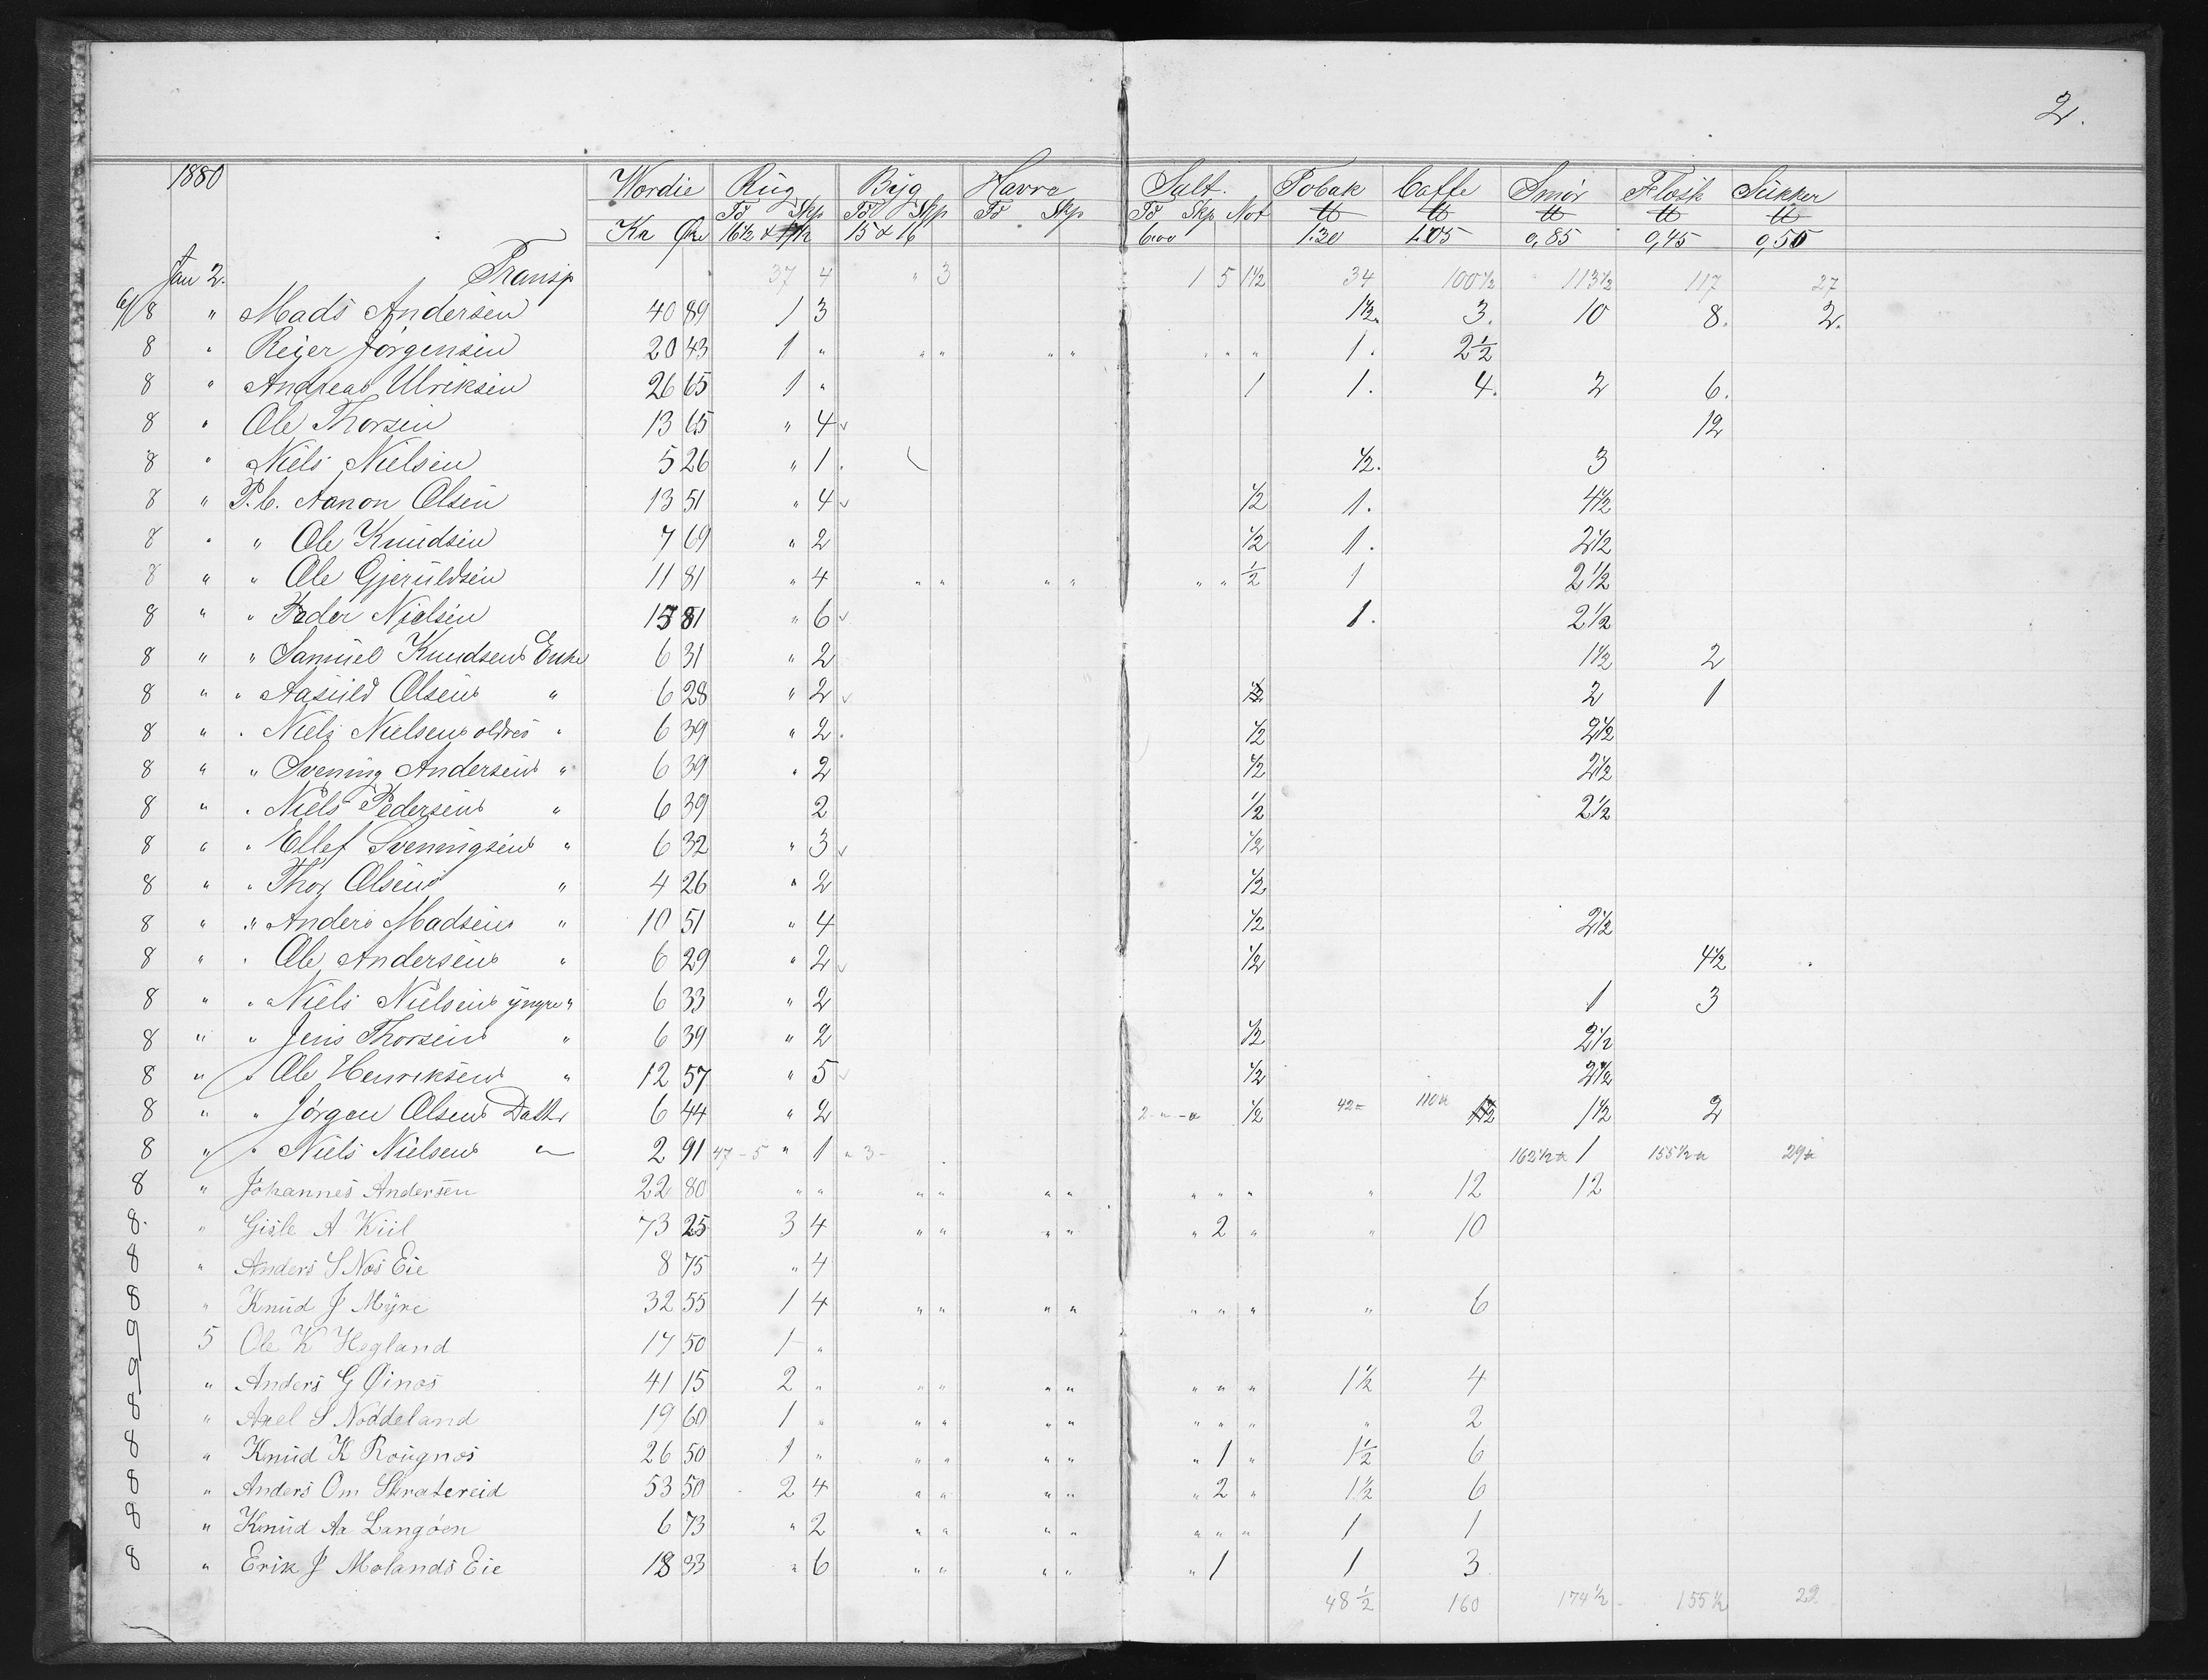 2.
1880 Wordie Rug Byg Havre Salt. Tobak Caffe Smör Flesk Sukker
Tö Skp Tö Skp Tö Skp Tö Skp Not ℔ ℔ ℔ ℔ ℔
Kr Øre 16½ 15 & 16 6.00 1.30 1.05 0,85 0,45 0,50
Jan 2. Transp 37 4 " 3 1 5 1½ 34 100½ 113½ 117 27
8 " Mads Andersen 40 89 1 3 1½. 3. 10 8. 2.
8 " Reier Jörgensen 20 43 1 " " " " " " " " 1. 2½
8 " Andreas Ulriksen 26 65 1 " 1 1. 4. 2 6.
8 " Ole Thorsen 13 65 " 4 v 12
8 " Niels Nielsen 5 26 " 1. ½. 3
8 " P.C. Aanon Olsen 13 51 " 4 v ½ 1. 4½
8 " " Ole Knudsen 7 69 " 2 ½ 1. 2½
8 " " Ole Gjeruldsen 11 81 " 4 " " " " " " ½ 1 2½
8 " " Peder Nielsen 15 81 " 6 v 1. 2½
8 " " Samuel Knudsens Enke 6 31 " 2 1½ 2
8 " " Aasuld Olsens " 6 28 " 2 v 2 1
8 " " Niels Nielsens oldres " 6 39 " 2. ½ 2½
8 " " Svening Andersens " 6 39 " 2 ½ 2½
8 " " Niels Pedersens " 6 39 2 ½ 2½
8 " " Ellef Sveningsens " 6 32 " 3 v ½
8 " " Thor Olsens " 4 26 " 2 ½
8 " " Anders Madsens " 10 51 " 4 ½ 2½
8 " " Ole Andersens " 6 29 " 2 v ½ 4½
8 " " Niels Nielsens yngre " 6 33 " 2 1 3
8 " " Jens Thorsens " 6 39 " 2 ½ 2½
8 " " Ole Henriksens " 12 57 " 5 v ½ 2½
8 " " Jörgen Olsens Datter 6 44 " 2 2 - " - " ½ 42 " 110 " 1½ 2
8 " " Niels Nielsens " 2 91 47 - 5 " 1 " 3 - 162½ " 1 155½ " 29 "
8 " Johannes Andersen 22 80 " " " " " " " " " " 12 12
8. " Gisle A Kiil 73 25 3 4 " " " " " 2 " " 10
8 " Anders S Nos Eie 8 75 " 4
8 " Knud J Myre 32 55 1 4 " " " " " " " " 6
9 5 Ole K Hegland 17 50 1 "
9 " Anders G Øinos 41 15 2 " " " " " " " " 1½ 4
8 " Axel S Noddeland 19 60 1 " " " " " " " " " 2
8 " Knud K Rougnos 26 50 1 " " " " " " 1 " 1½ 6
8 " Anders Om Skratereid 53 50 2 4 " " " " " 2 " 1½ 6
8 " Knud Aa Langöen 6 73 " 2 " " " " " " " 1 1
8 " Erik J Molands Eie 18 33 " 6 " " " " " 1 1 3
48½ 160 174½ 155½ 29